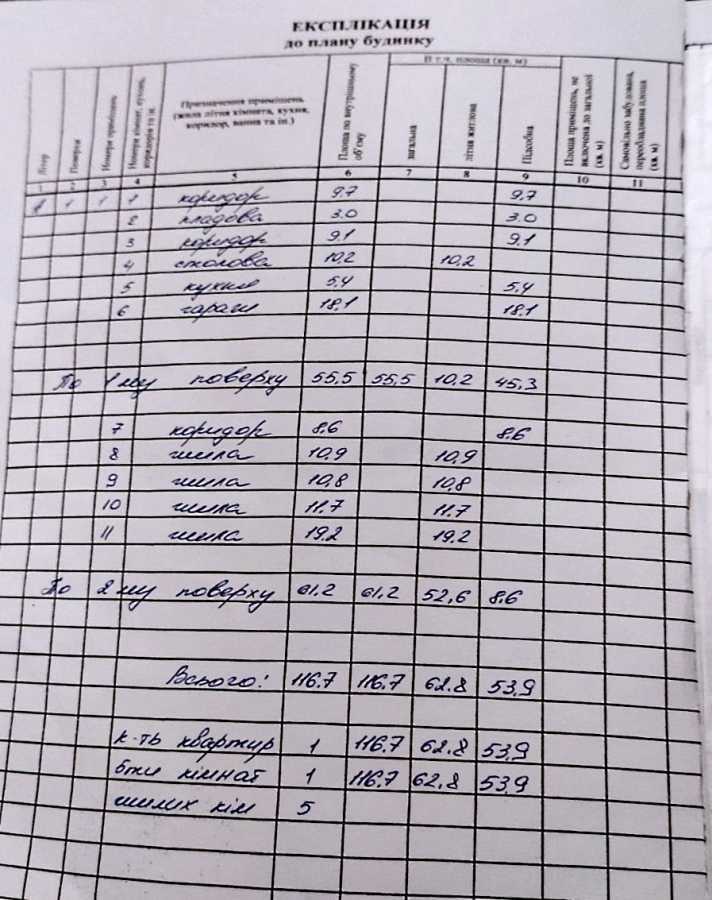 ЕКСПЛІКАЦІЯ
до плану будинку
Літер
Поверхи
Номери приміщень
Номери кімнат, кухонь, коридорів та ін.
Призначення приміщень (жила літня кімната, кухня, коридор, ванна та ін.)
Площа по внутрішньому об'єму
В т.ч. площа (кв. м)
загальна
літня житлова
Підсобна
Площа приміщень, не включена до загальної (кв. м)
Самовільно забудована, переобладнана площа (кв. м)
1 2 3 4 5 6 7 8 9 10 11
А 1 1 1 коридор 9.7 9.7
2 кладова 3.0 3.0
3 коридор 9.1 9.1
4 столова 10,2 10,2
5 кухня 5,4 5.4
6 гараж 18,1 18,1
По 1 му поверху 55,5 55,5 10,2 45,3
7 коридор 8.6 8.6
8 жила 10,9 10,9
9 жила 10,8 10,8
10 жила 11.7 11.7
11 жила 19,2 19,2
По 2 му поверху 61,2 61,2 52,6 8.6
Всього: 116.7 116.7 62.8 53,9
к-ть квартир 1 116.7 62.8 53,9
1 116.7 62,8 53,9
жилих кім 5